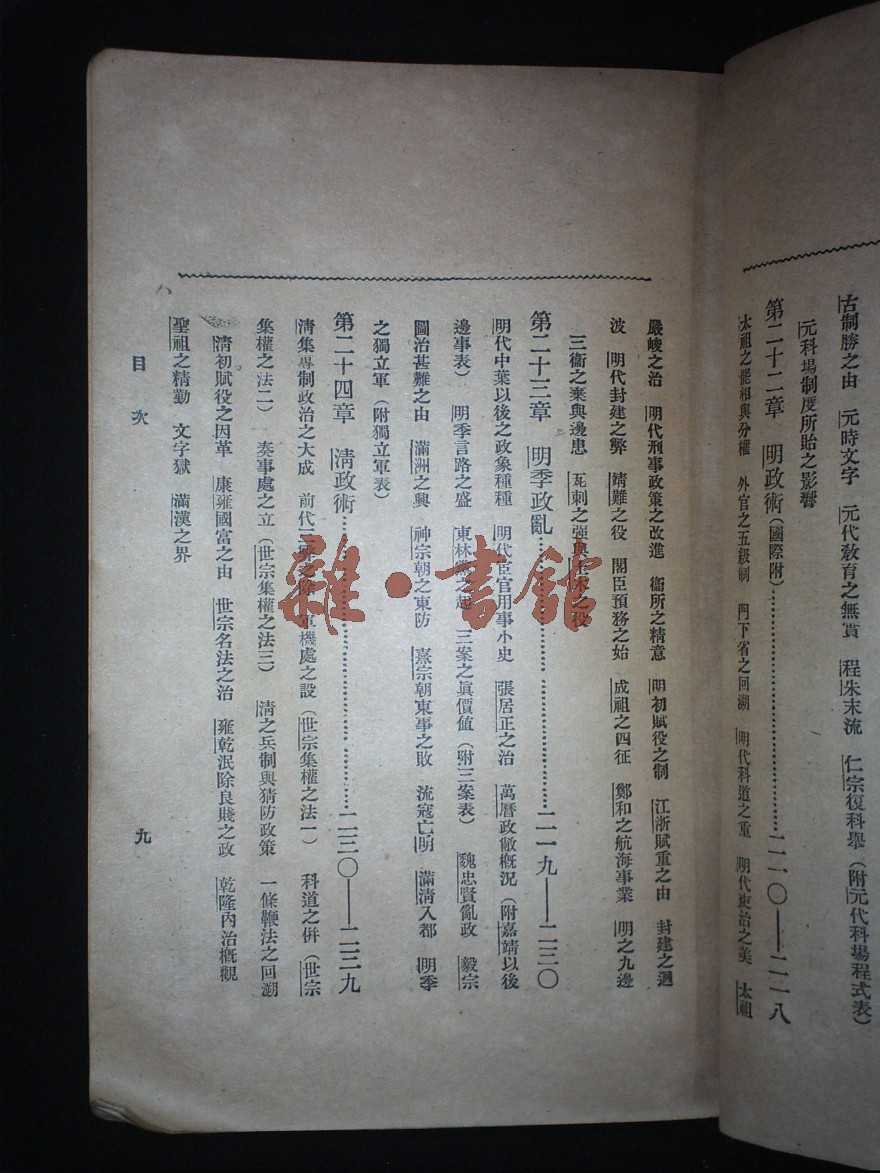 古制勝之由　元時文字　元代教育之無實　程朱末流　仁宗復科舉（附元代科場程式表）
元科場制度所貽之影響
第二十二章　明政術（國際附）……二一〇——二一八
太祖之罷相與分權　外官之五級制　門下省之回溯　明代科道之重　明代吏治之美　太祖
嚴峻之治　明代刑事政策之改進　衞所之精意　明初賦役之制　江浙賦重之由　封建之迴
波　明代封建之弊　靖難之役　閣臣預務之始　成祖之四征　鄭和之航海事業　明之九邊
三衞之棄與邊患　瓦剌之強與土木之役
第二十三章　明季政亂……二一九——二三〇
明代中葉以後之政象種種　明代臣官用事小史　張居正之治　萬曆政敝概況（附嘉靖以後
邊事表）　明季言路之盛　東林黨之起　三案之眞價値（附三案表）　魏忠賢亂政　毅宗
圖治甚難之由　滿洲之興　神宗朝之東防　熹宗朝東事之敗　流寇亡明　滿清入都　明季
之獨立軍（附獨立軍表）
第二十四章　清政術……二三〇——二三九
清集專制政治之大成　前代一　之除　軍機處之設（世宗集權之法一）　科道之併（世宗
集權之法二）　奏事處之立（世宗集權之法三）　清之兵制與猜防政策　一條鞭法之回溯
清初賦役之因革　康雍國富之由　世宗名法之治　雍乾泯除良賤之政　乾隆內治概觀
聖祖之精勤　文字獄　滿漢之界
目　次
九
雜·書館